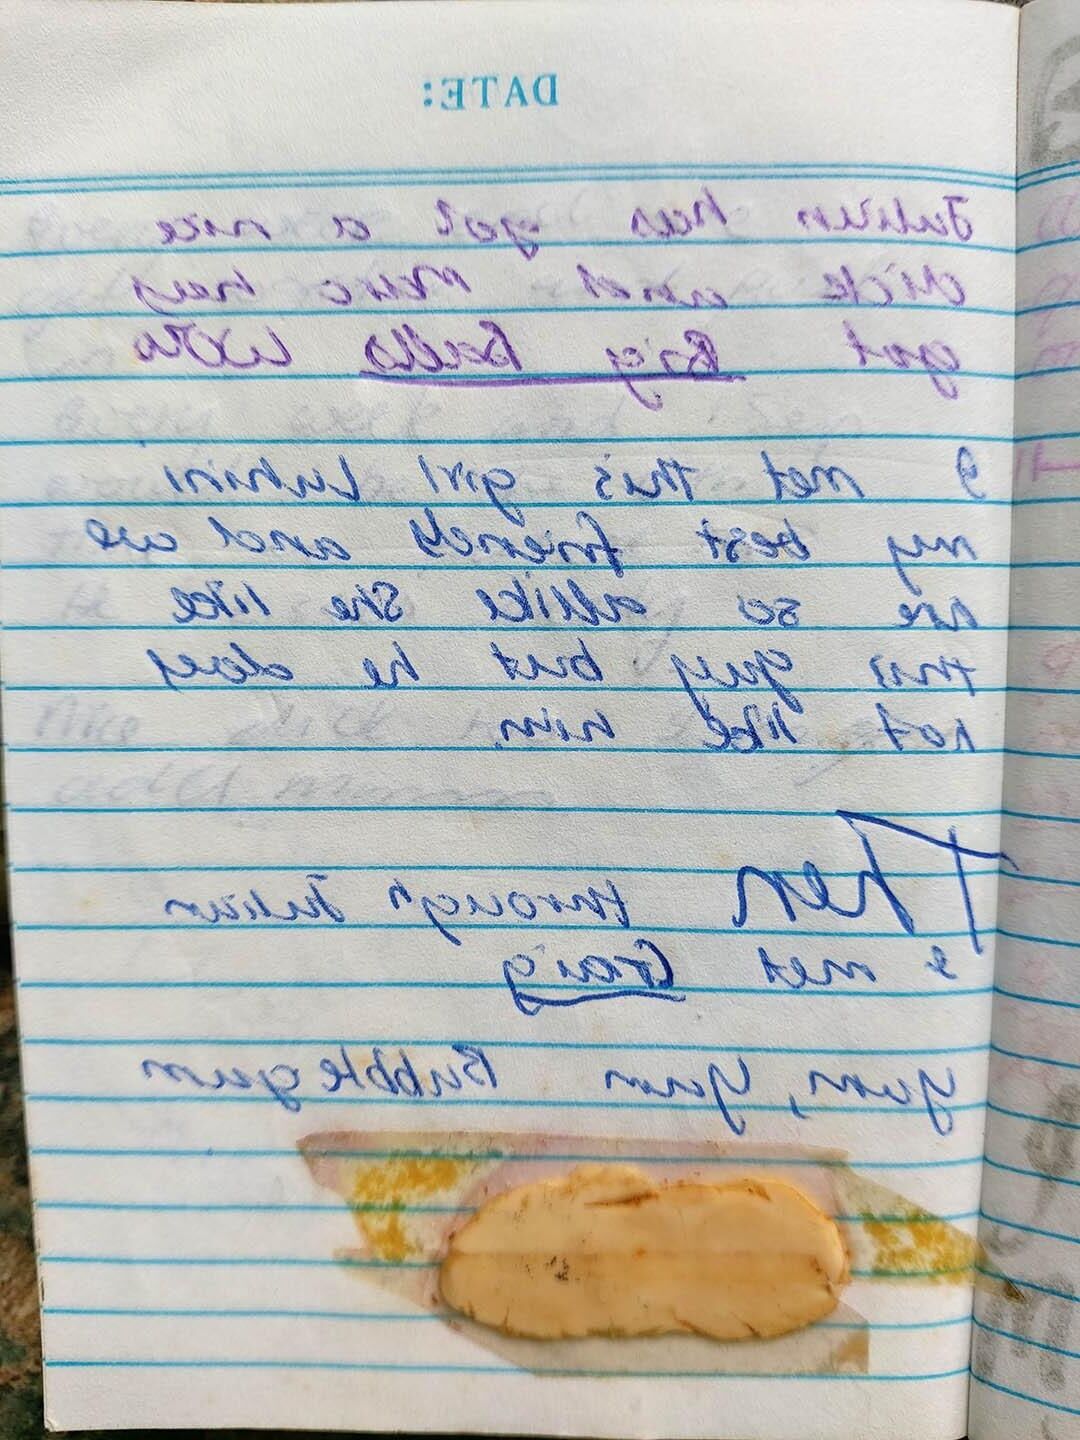 DATE:
Julian has got a nice
dick and Marc hey
got Big Balls WOW
I met this girl Luhini
my best friends and we
are so allike She like
this guy but he does
not like him.
Then through Julian
I met Craig
yum, yum Bubblegum